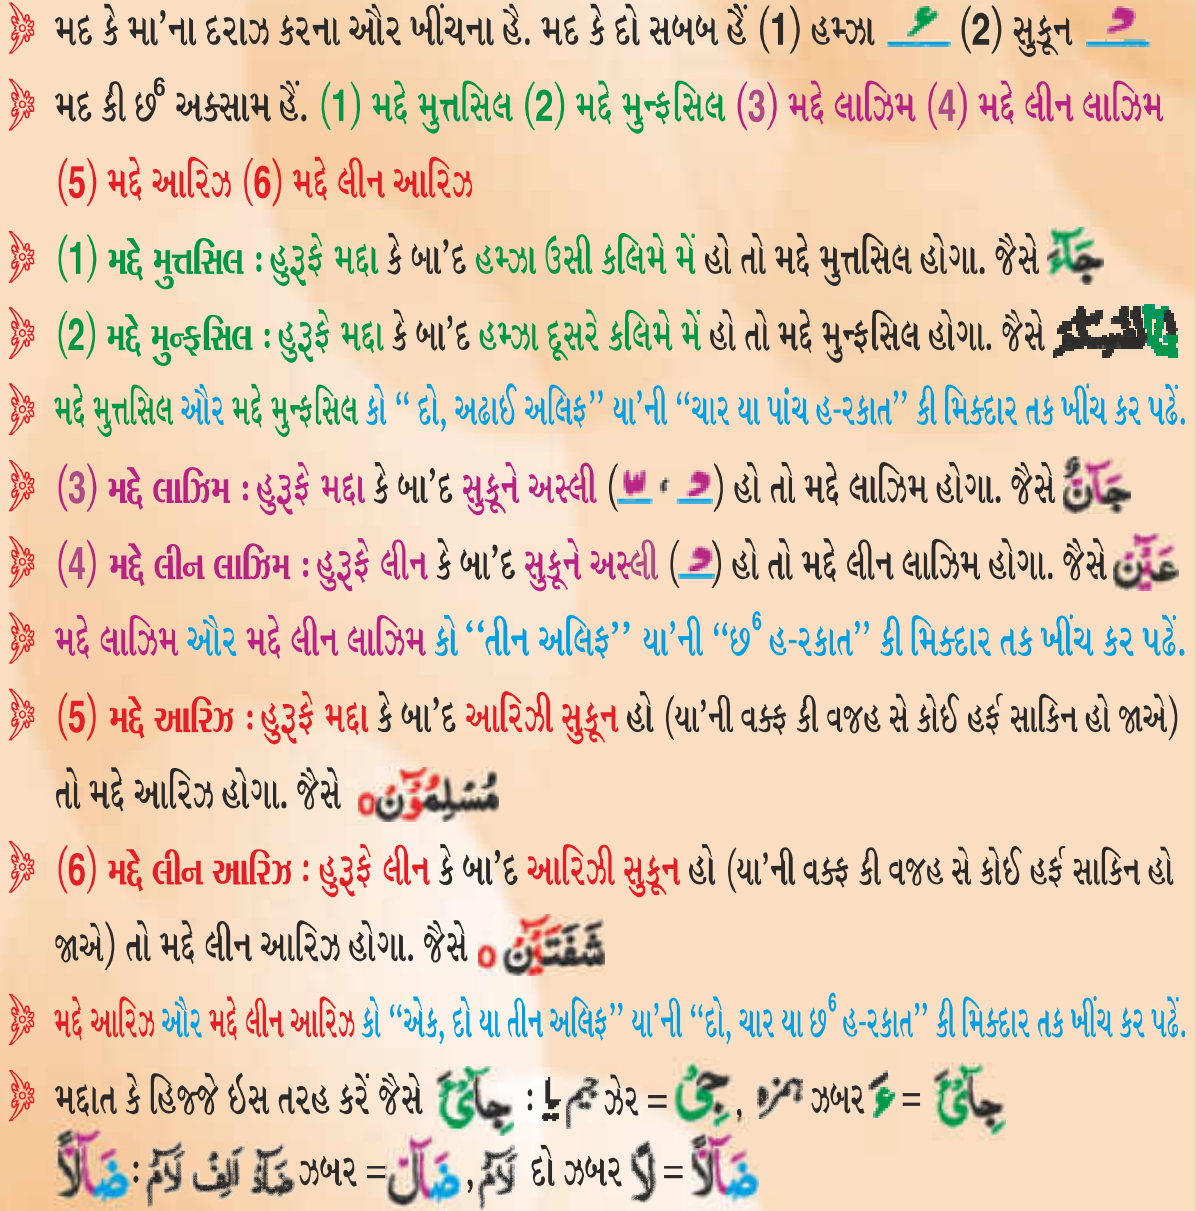 મદ કે મા’ના દરાઝ કરના ઔર ખીંચના હૈ. મદ કે દો સબબ હૈં (1) હમ્ઝા ء (2) સુકૂન
મદ કી છ6 અક્સામ હૈં. (1) મદ્દે મુત્તસિલ (2) મદ્દે મુન્ફસિલ (3) મદ્દે લાઝિમ (4) મદ્દે લીન લાઝિમ
(5) મદ્દે આરિઝ (6) મદ્દે લીન આરિઝ
(1) મદ્દે મુત્તસિલ : હુરૂફે મદ્દા કે બા’દ હમ્ઝા ઉસી કલિમે મેં હો તો મદ્દે મુત્તસિલ હોગા. જૈસે جَآءَ
(2) મદ્દે મુન્ફસિલ : હુરૂફે મદ્દા કે બા’દ હમ્ઝા દૂસરે કલિમે મેં હો તો મદ્દે મુન્ફસિલ હોગા. જૈસે
મદ્દે મુત્તસિલ ઔર મદ્દે મુન્ફસિલ કો “ દો, અઢાઈ અલિફ” યા’ની “ચાર યા પાંચ હ-રકાત” કી મિક્દાર તક ખીંચ કર પઢેં.
(3) મદ્દે લાઝિમ : હુરૂફે મદ્દા કે બા’દ સુકૂને અસ્લી ( ) હો તો મદ્દે લાઝિમ હોગા. જૈસે جَآنٌّ
(4) મદ્દે લીન લાઝિમ : હુરૂફે લીન કે બા’દ સુકૂને અસ્લી ( ) હો તો મદ્દે લીન લાઝિમ હોગા. જૈસે عَيْن
મદ્દે લાઝિમ ઔર મદ્દે લીન લાઝિમ કો ‘‘તીન અલિફ’’ યા’ની “છ6 હ-રકાત’’ કી મિક્દાર તક ખીંચ કર પઢેં.
(5) મદ્દે આરિઝ : હુરૂફે મદ્દા કે બા’દ આરિઝી સુકૂન હો (યા’ની વક્ફ કી વજહ સે કોઈ હર્ફ સાકિન હો જાએ)
તો મદ્દે આરિઝ હોગા. જૈસે مُسْلِمُوْنَ ○
(6) મદ્દે લીન આરિઝ : હુરૂફે લીન કે બા’દ આરિઝી સુકૂન હો (યા’ની વક્ફ કી વજહ સે કોઈ હર્ફ સાકિન હો
જાએ) તો મદ્દે લીન આરિઝ હોગા. જૈસે شَفَتَيْنِ ○
મદ્દે આરિઝ ઔર મદ્દે લીન આરિઝ કો “એક, દો યા તીન અલિફ” યા’ની “દો, ચાર યા છ6 હ-રકાત” કી મિક્દાર તક ખીંચ કર પઢેં.
મદ્દાત કે હિજ્જે ઇસ તરહ કરેં જૈસે جِآىْءَ : جيم يا ઝેર = جِىْٓ , ہمزہ ઝબર ءَ = جِآىْءَ
ضَآلًّا : ضَاد اَلِفْ لَامْ ઝબર = ضَآلّ , لَامْ દો ઝબર لًا = ضَآلًّا